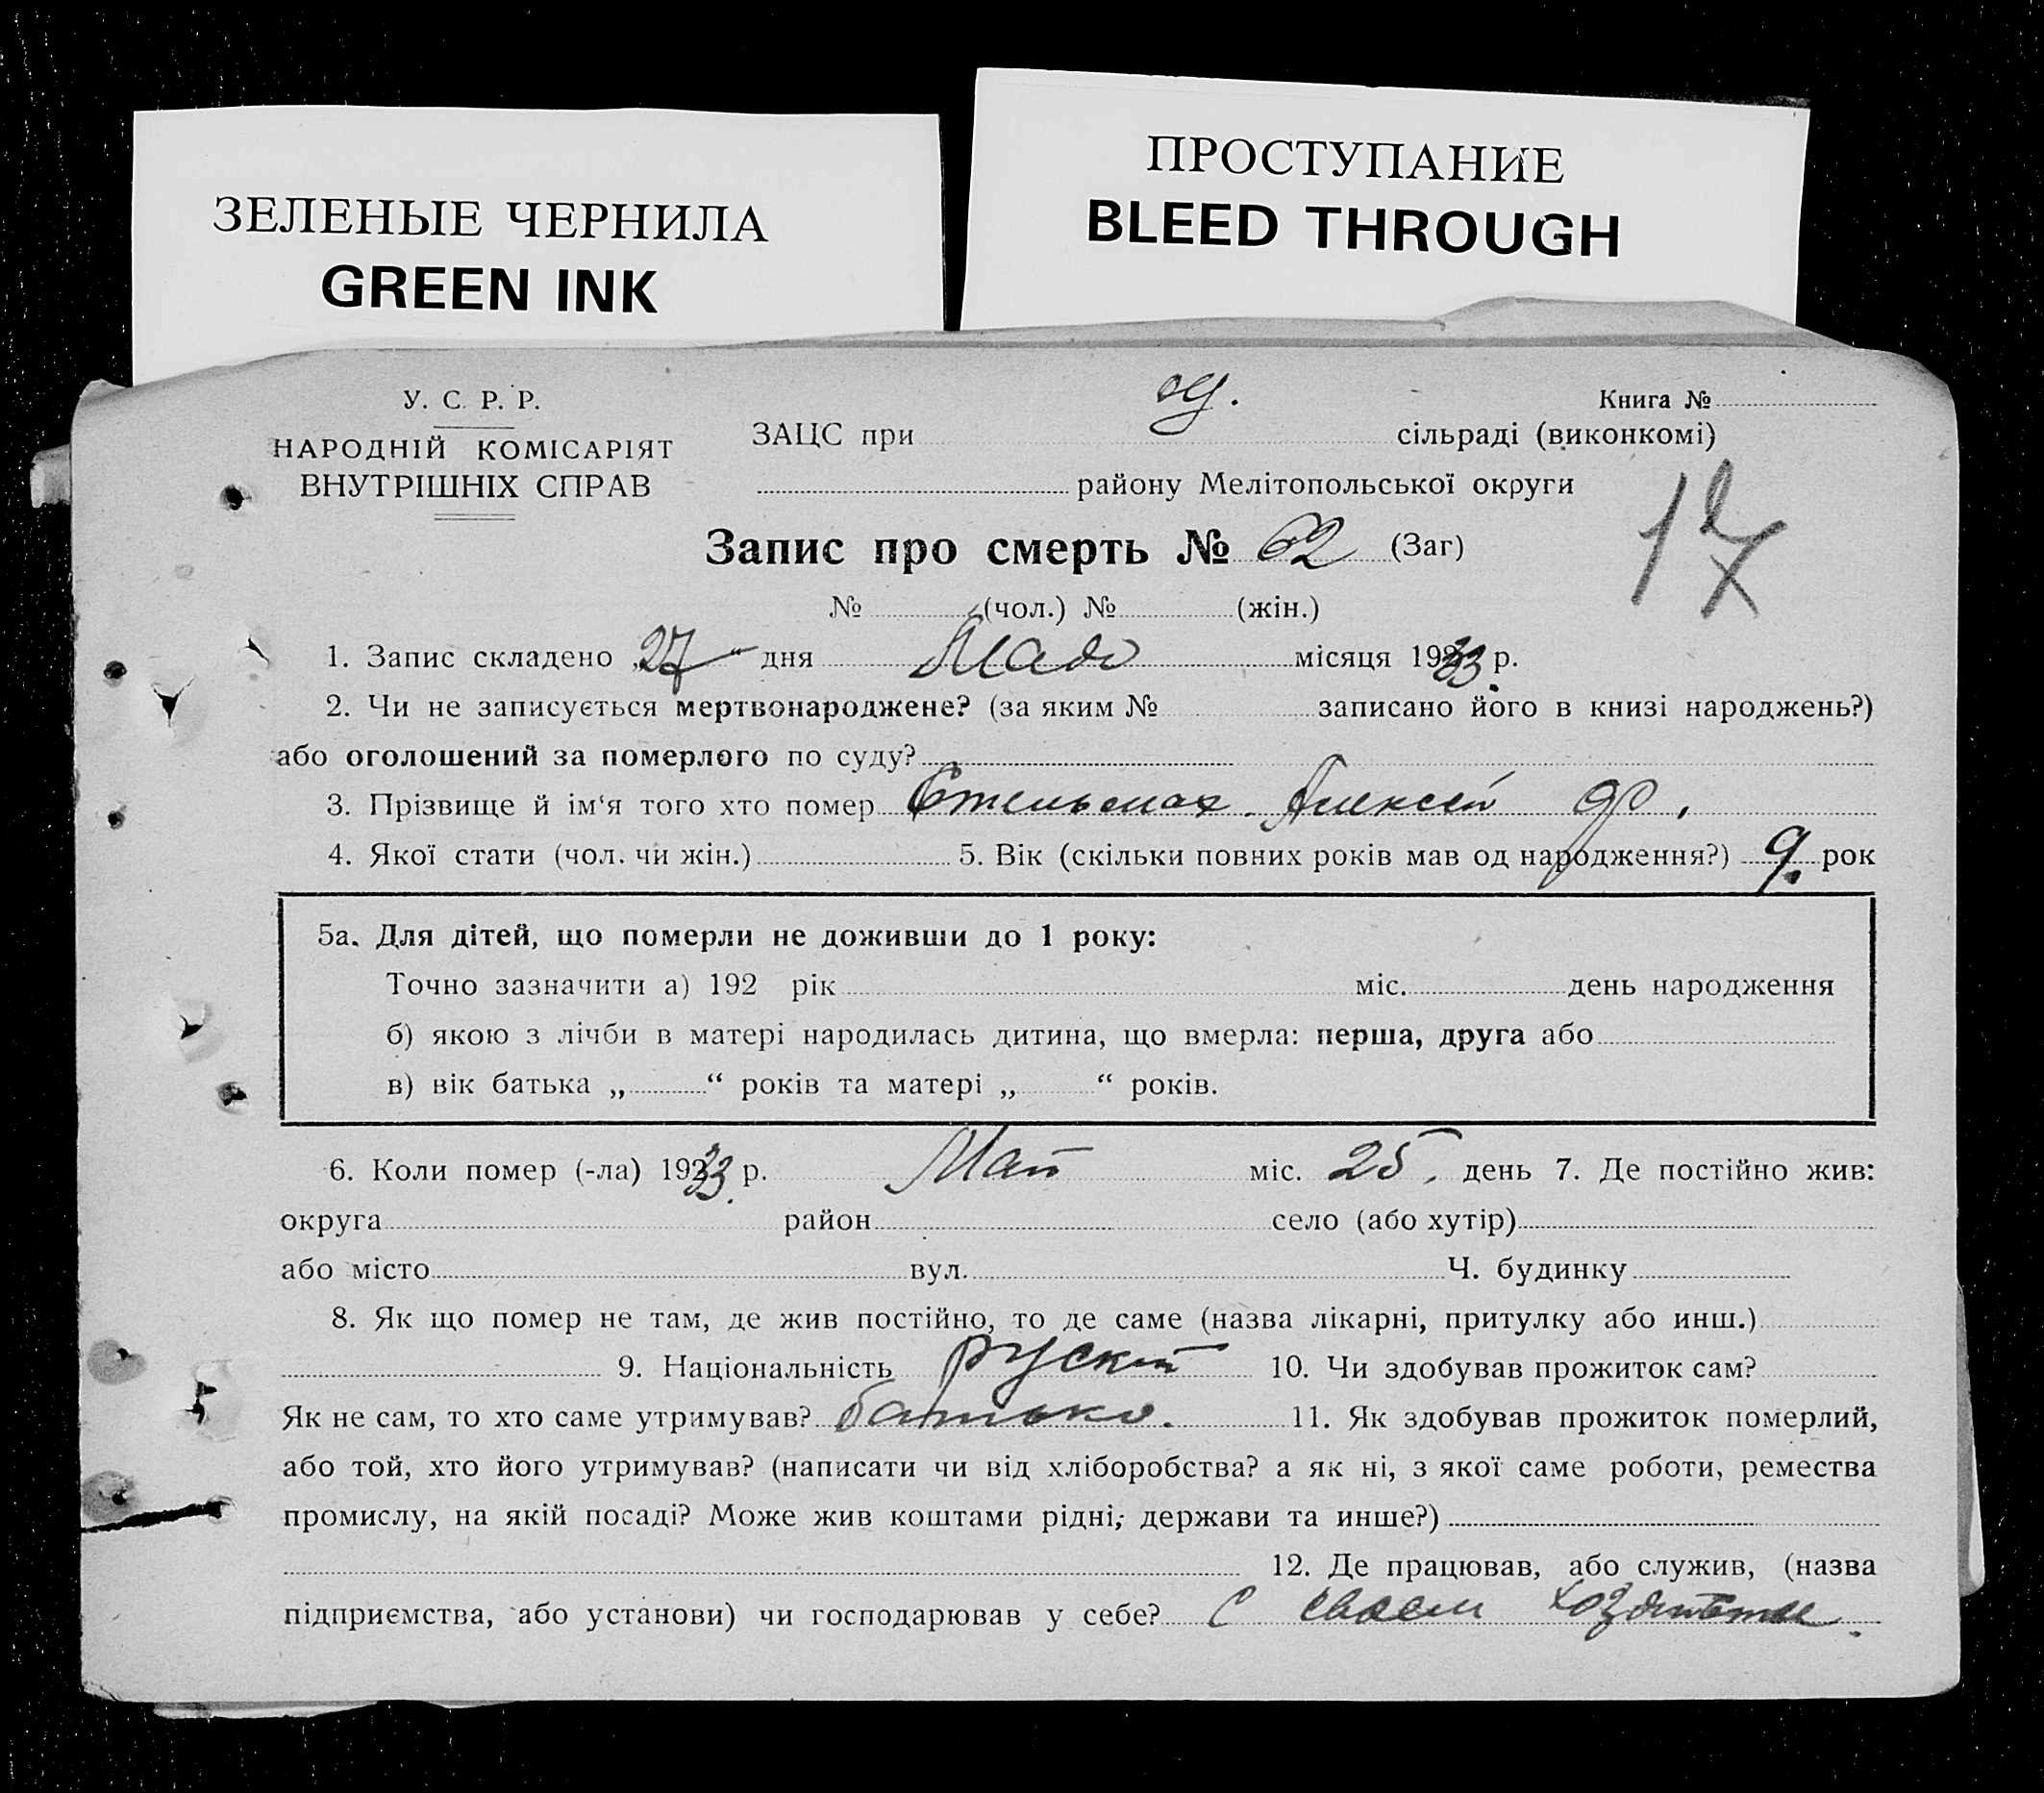 ЗЕЛЕНЫЕ ЧЕРНИЛА
GREEN INK
ПРОСТУПАНИЕ
BLEED THROUGH
У. С. Р. Р.
НАРОДНІЙ КОМІСАРІЯТ
ВНУТРІШНІХ СПРАВ
Книга №
ЗАЦС при сільраді (виконкомі)
району Мелітопольської округи
17
Запис про смерть № 62 (Заг)
№ (чол.) № (жін.)
1. Запис складено „27“ дня Мая місяця 1933 р.
2. Чи не записується мертвонароджене? (за яким № записано його в книзі народжень?)
або оголошений за померлого по суду?
3. Прізвище й ім‘я того хто помер Стельмах Алексей
4. Якої стати (чол. чи жін.) 5. Вік (скільки повних років мав од народження?) 9 рок
5а. Для дітей, що померли не доживши до 1 року:
Точно зазначити а) 192 рік міс. день народження
б) якою з лічби в матері народилась дитина, що вмерла: перша, друга або
в) вік батька „ “ років та матері „ “ років.
6. Коли помер (-ла) 1933 р. Май міс. 25. день 7. Де постійно жив:
округа район село (або хутір)
або місто вул. Ч. будинку
8. Як що помер не там, де жив постійно, то де саме (назва лікарні, притулку або инш.)
9. Національність руский 10. Чи здобував прожиток сам?
Як не сам, то хто саме утримував? батько. 11. Як здобував прожиток померлий,
або той, хто його утримував? (написати чи від хліборобства? а як ні, з якої саме роботи, ремества
промислу, на якій посаді? Може жив коштами рідні, держави та инше?)
12. Де працював, або служив, (назва
підприємства, або установи) чи господарював у себе? С своем хозяйстве.